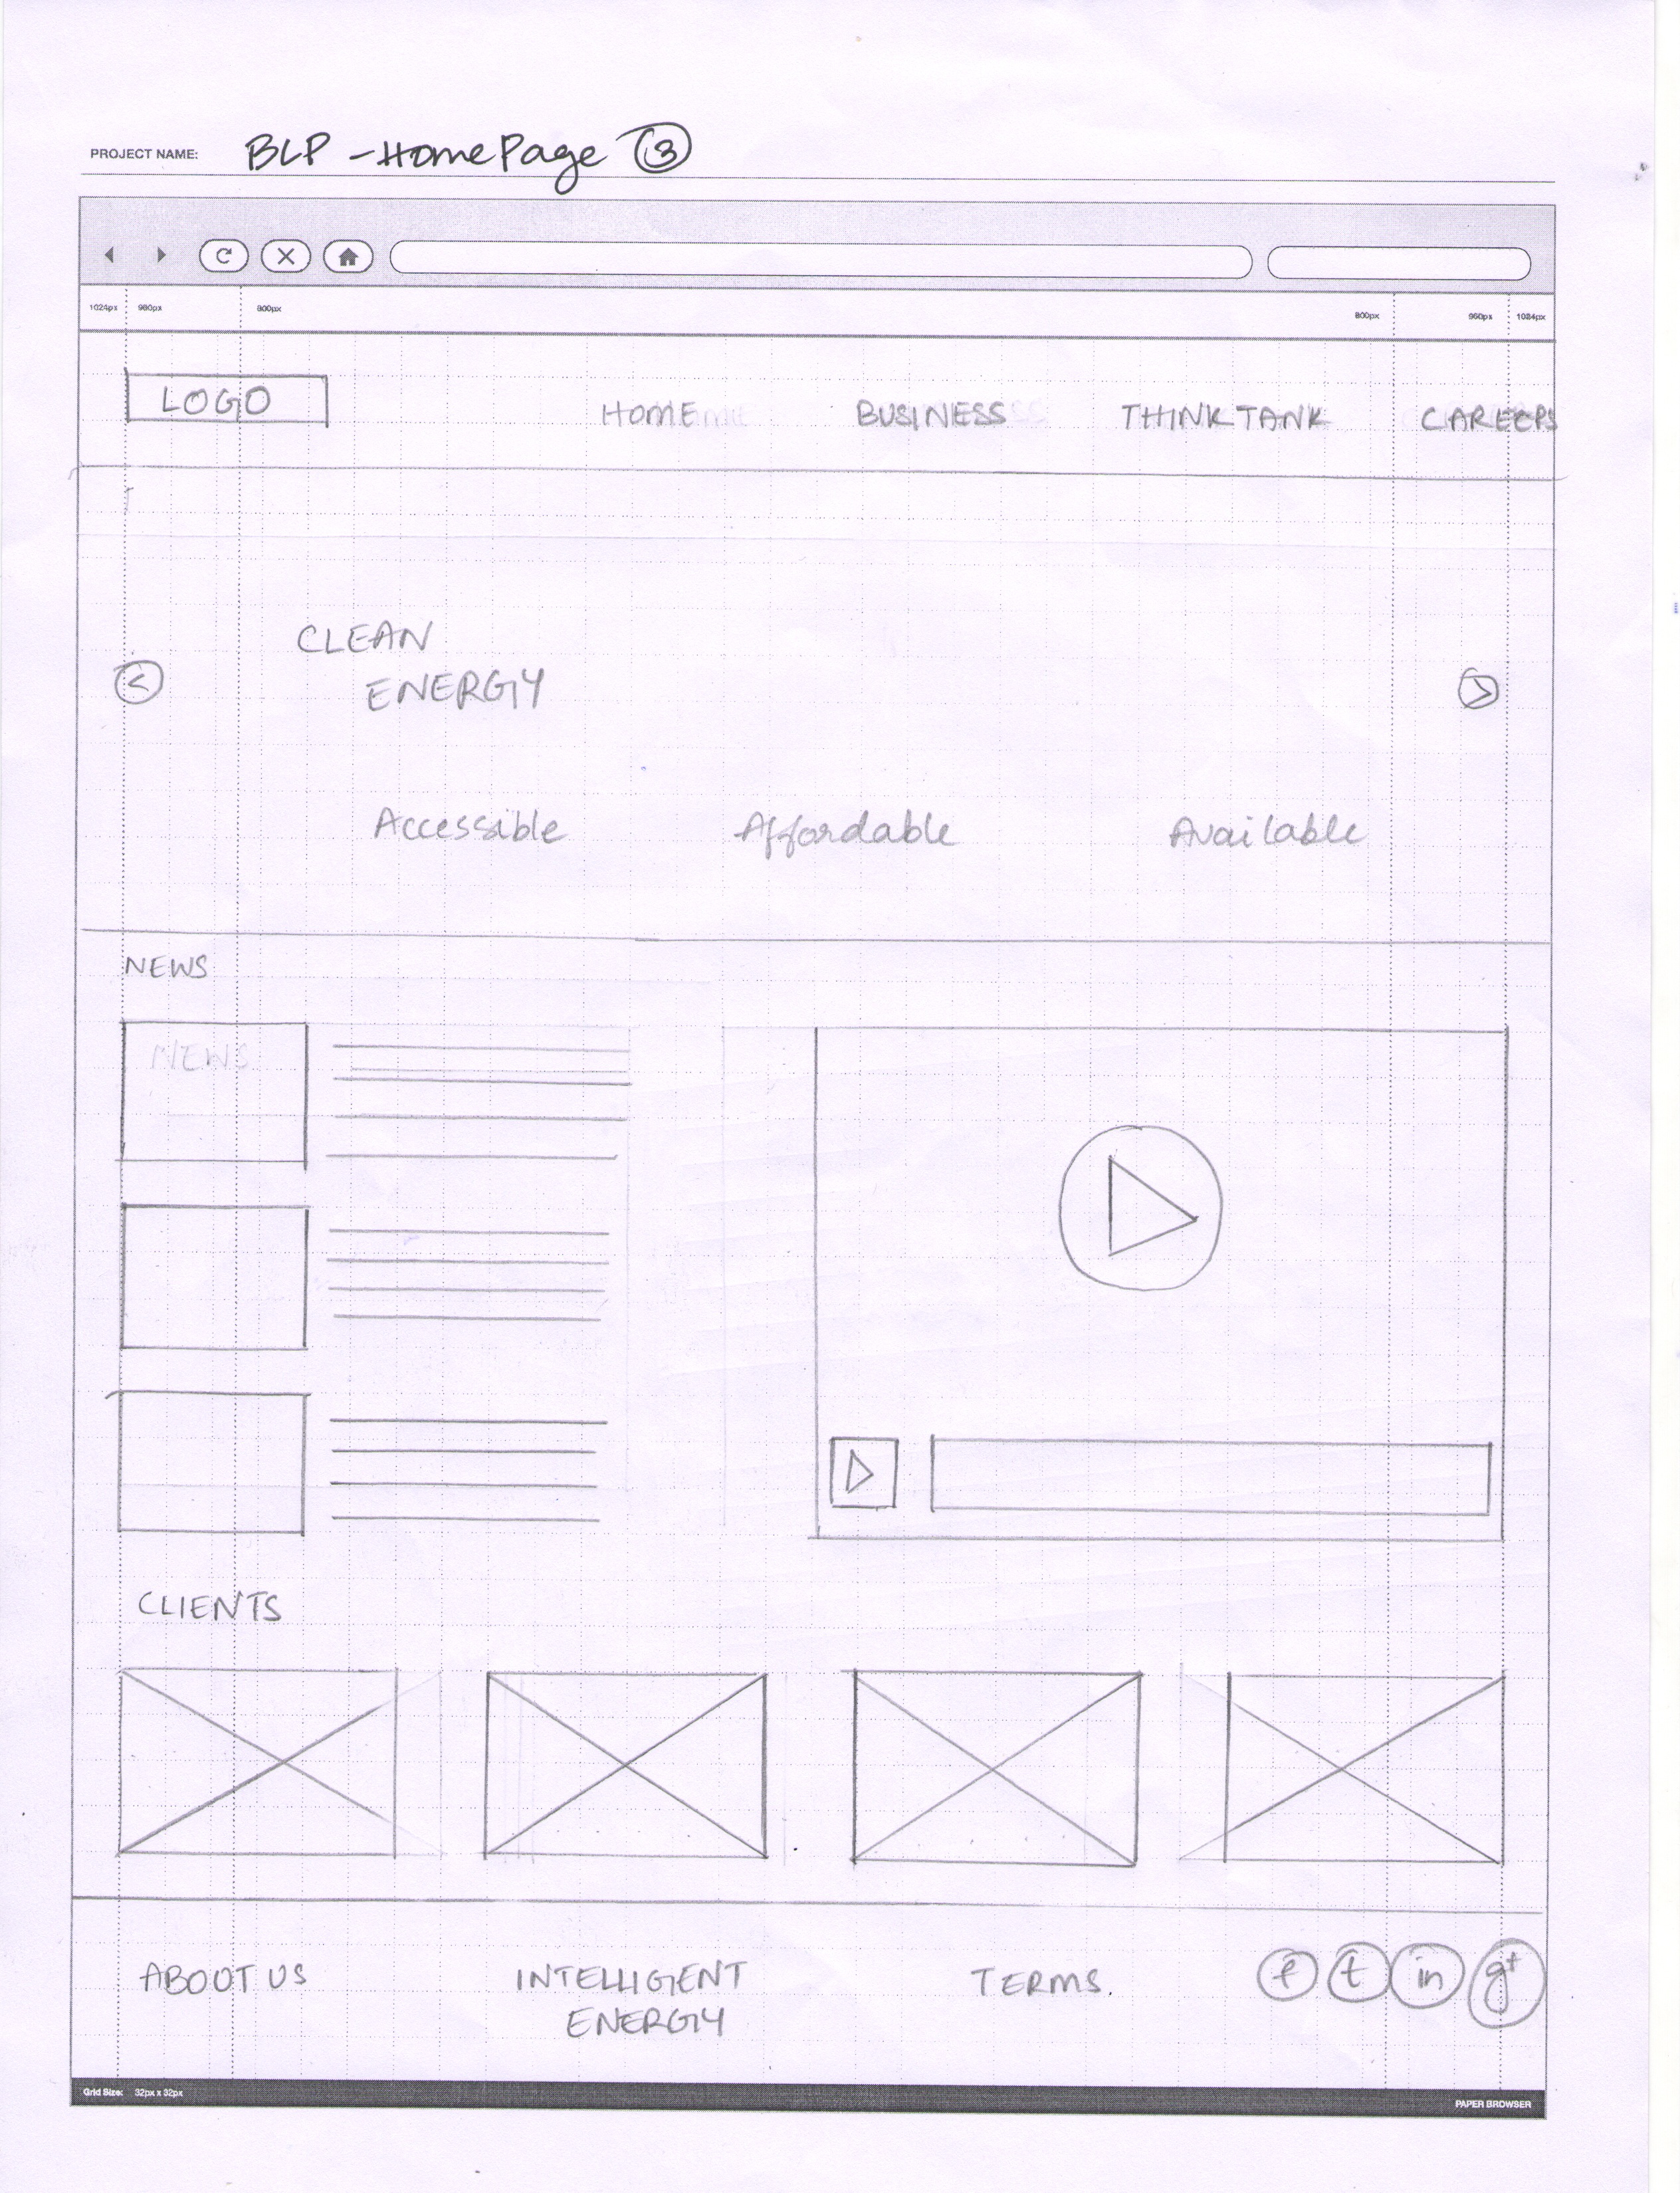 PROJECT NAME: BLP - HomePage 3
1024px 960px 800px 800px 960px 1024px
LOGO HOME BUSINESS THINK TANK CAREERS
CLEAN
ENERGY
< >
Accessible Affordable Available
NEWS
NEWS
CLIENTS
ABOUT US INTELLIGENT ENERGY TERMS. f t in g+
Grid Size: 32px x 32px PAPER BROWSER